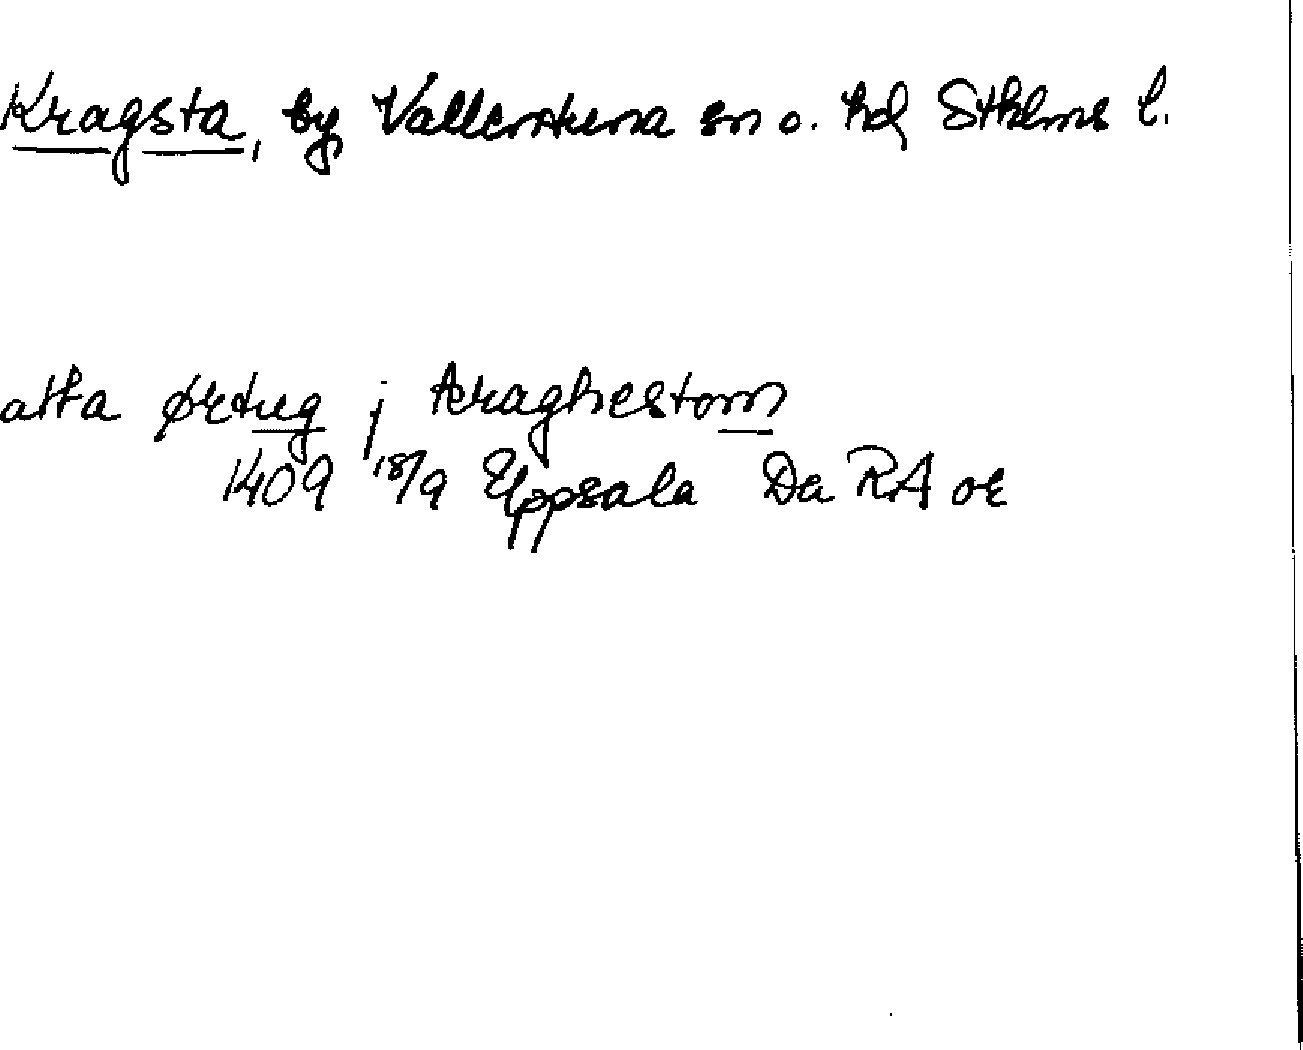 Kragsta, by Vallentuna sn o. hd Sthlms l.
atta ørtug j kraghestom
1409 18/9 Uppsala Da RA or